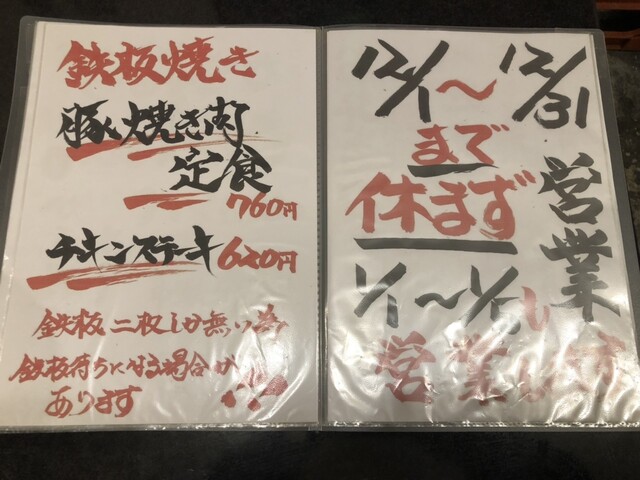 鉄板焼き
豚焼き肉
定食
760円
チキンステーキ 620円
鉄板二枚しか無い為
鉄板待ちになる場合が
あります
12/1〜12/31
まで
休まず
営業
1/1〜1/5も
営業します